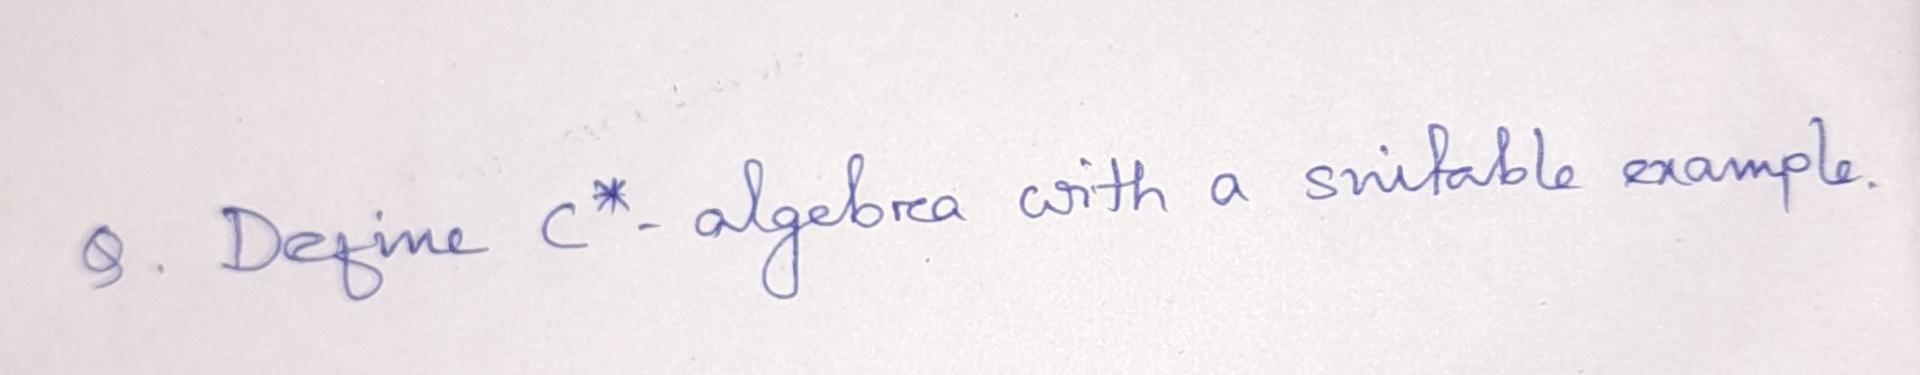 Q. Define C*-algebra with a suitable example.